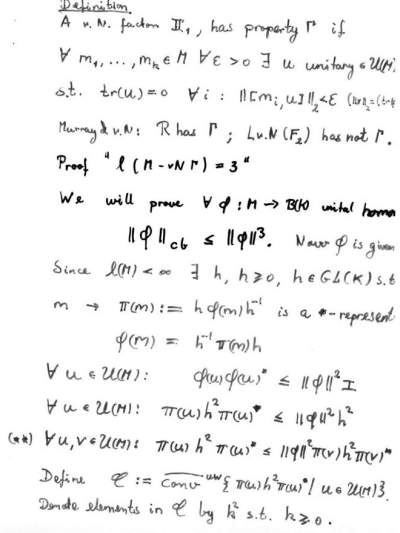 Definition
A v.N. factor II₁, has property Γ if
∀ m₁,...,mₖ ∈ M ∀ε > 0 ∃ u unitary ∈ U(M)
s.t. tr(u)=0 ∀i : ‖[mᵢ,u]‖₂<ε
Murray & v.N: R has Γ ; Lv.N(F₂) has not Γ.
Proof " l(M-vNΓ) = 3 "
We will prove ∀ φ : M → B(H) unital homom
‖φ‖cb ≤ ‖φ‖³. Now φ is given
Since l(M) < ∞ ∃ h, h≥0, h∈GL(K) s.t
m → π(m) := hφ(m)h⁻¹ is a *-represent
φ(m) = h⁻¹π(m)h
∀ u ∈ U(M): φ(u)φ(u)* ≤ ‖φ‖² I
∀ u ∈ U(M): π(u)h²π(u)* ≤ ‖φ‖²h²
(**) ∀ u,v ∈ U(M): π(u)h²π(u)* ≤ ‖φ‖²π(v)h²π(v)*
Define C := conv uw {π(u)h²π(u)* / u ∈ U(M)}.
Denote elements in C by k² s.t. k≥0.